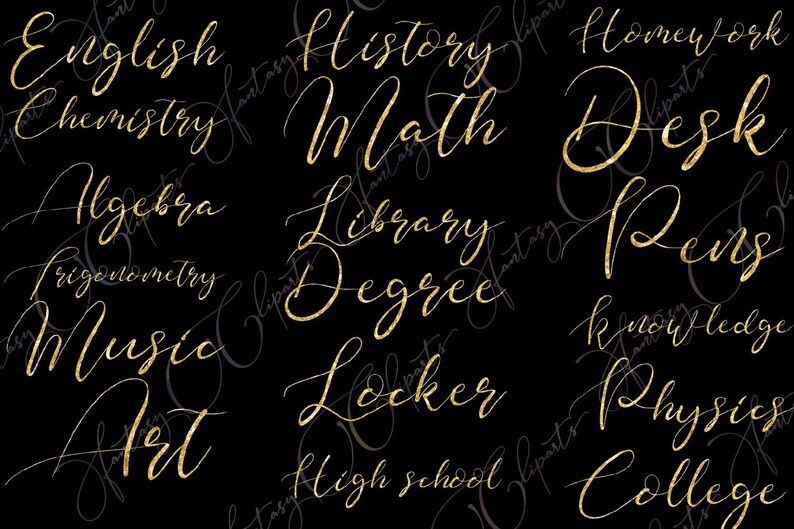 English
Chemistry
Algebra
Trigonometry
Music
Art
History
Math
Library
Degree
Locker
High school
Homework
Desk
Pens
knowledge
Physics
College
fantasy Cliparts